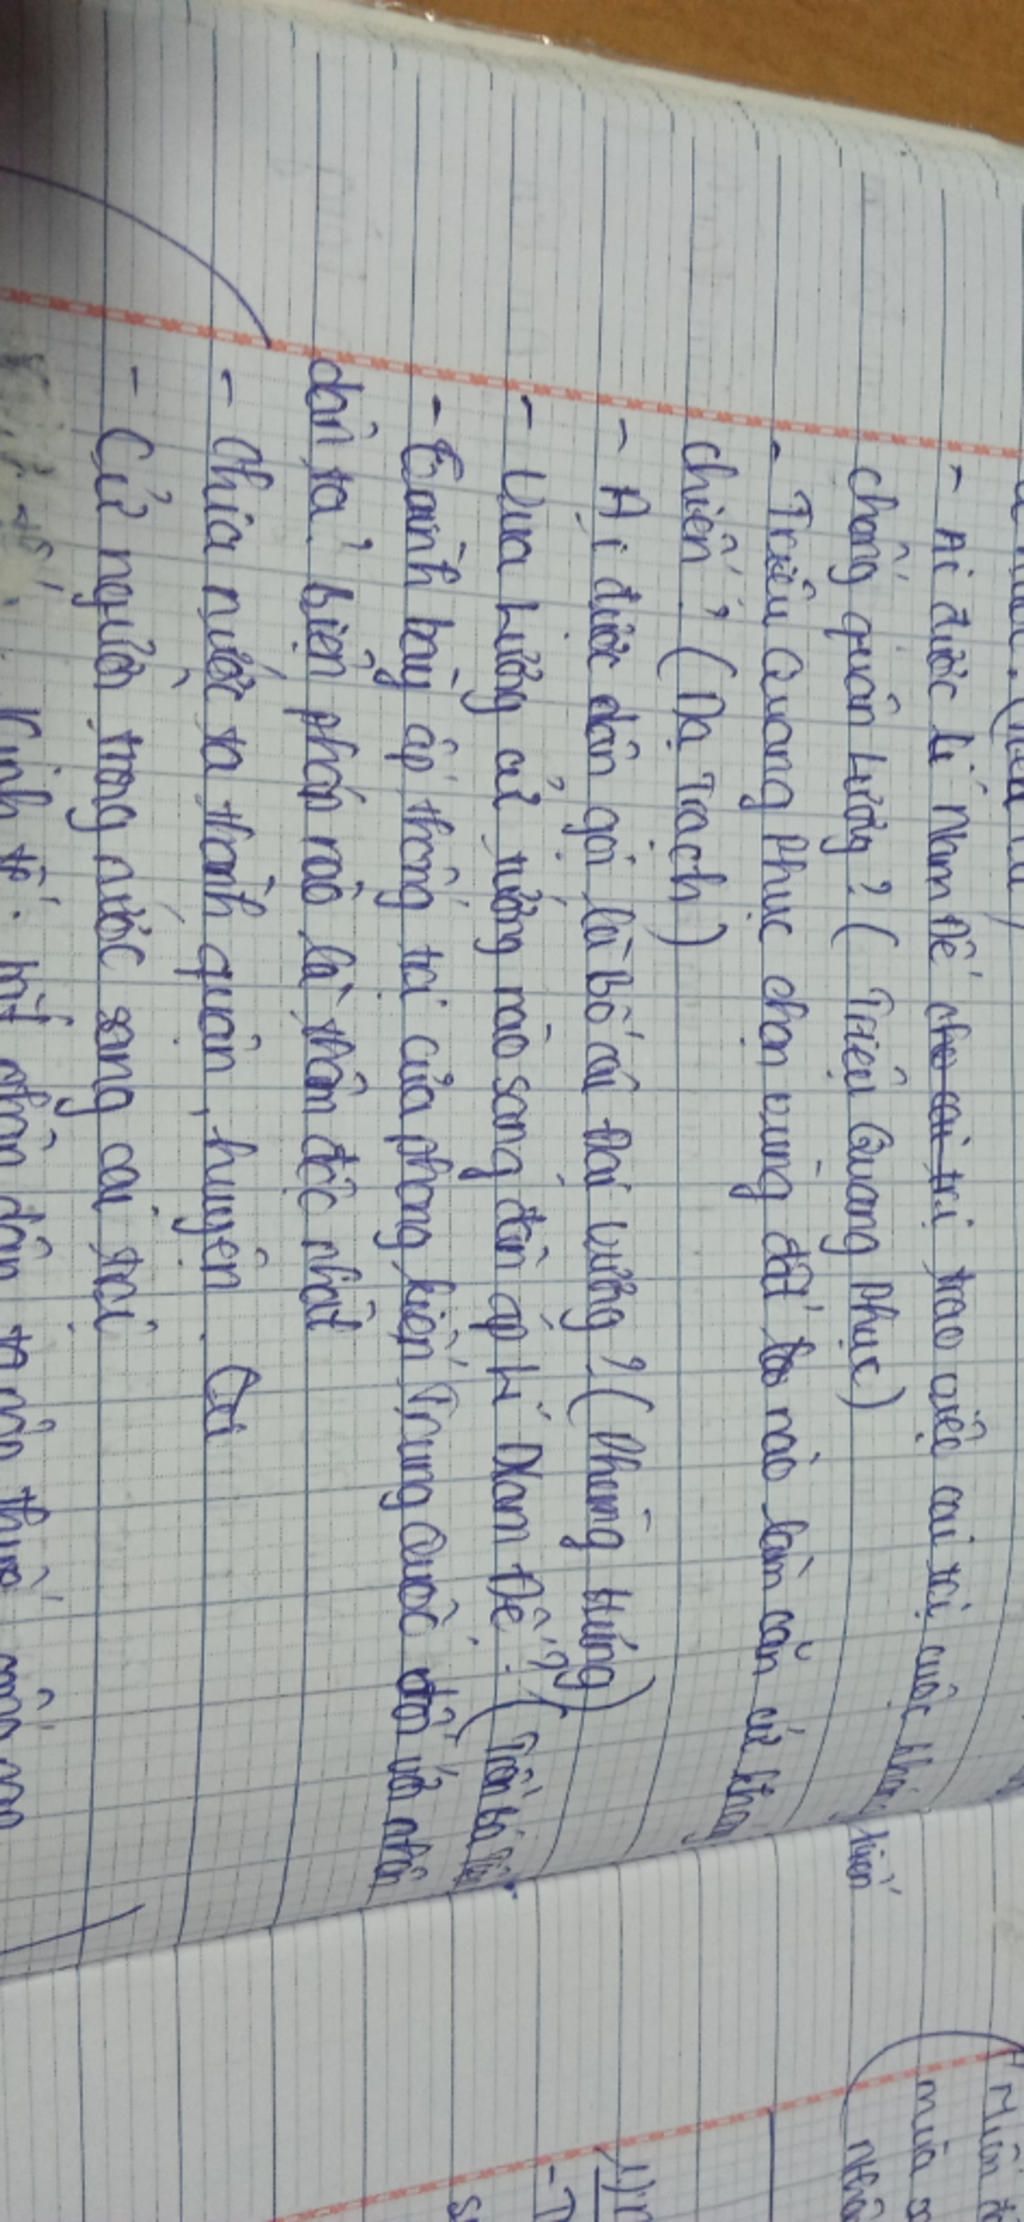 - Ai được Lí Nam Đế cho cai trị trao việc cai trị cuộc kháng
chống quân Lương? (Triệu Quang Phục)
kiến
- Triệu Quang Phục chọn vùng đất nào làm căn cứ kháng
chiến? (Dạ Trạch)
- Ai được dân gọi là Bố cái Đại Vương? (Phùng Hưng)
- Vua Lương cử tướng nào sang đàn áp Lí Nam Đế? (Trần Bá
- Trình bày áp thống trị của phong kiến Trung Quốc đối với nhân
dân ta? biện pháp nào là thâm độc nhất
- Chia nước ta thành quận, huyện. Cai
- Cử người trong nước sang cai trị
Kinh tế: bắt nhân dân ta nộp thuế
mùa